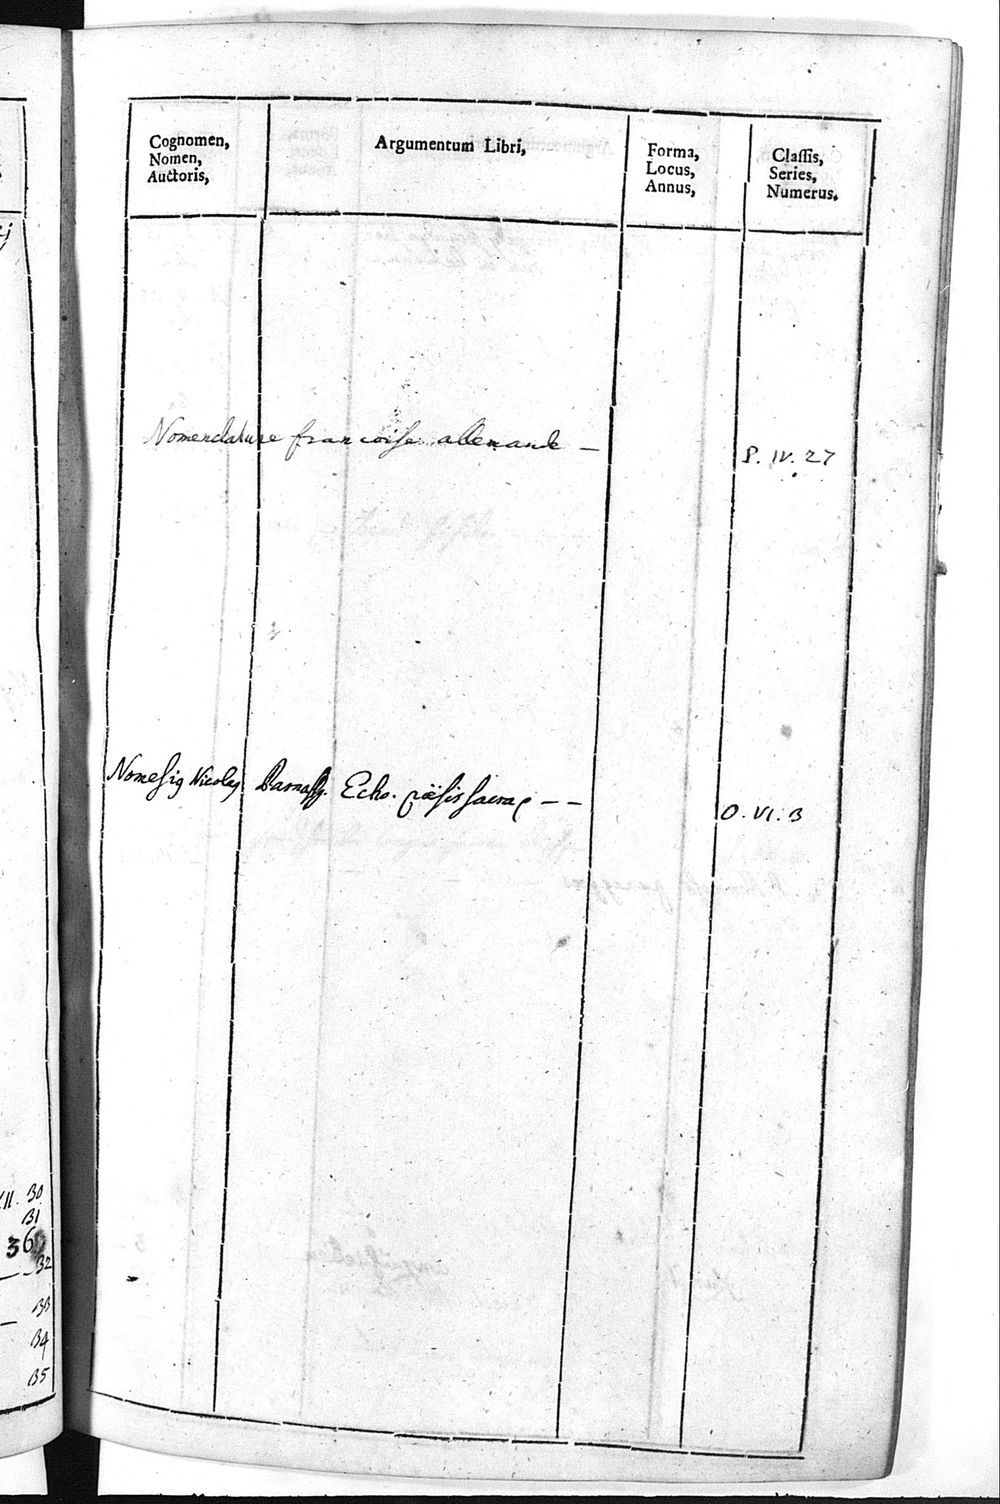 Cognomen,
Nomen,
Auctoris,
Argumentum Libri,
Forma,
Locus,
Annus,
Classis,
Series,
Numerus.
Nomenclature francoise allemande —
P. IV. 27
Nomesig Nicolas Parnass. Echo. poësis sacrae — —
O. VI. 3
30
31
36
32
33
34
35